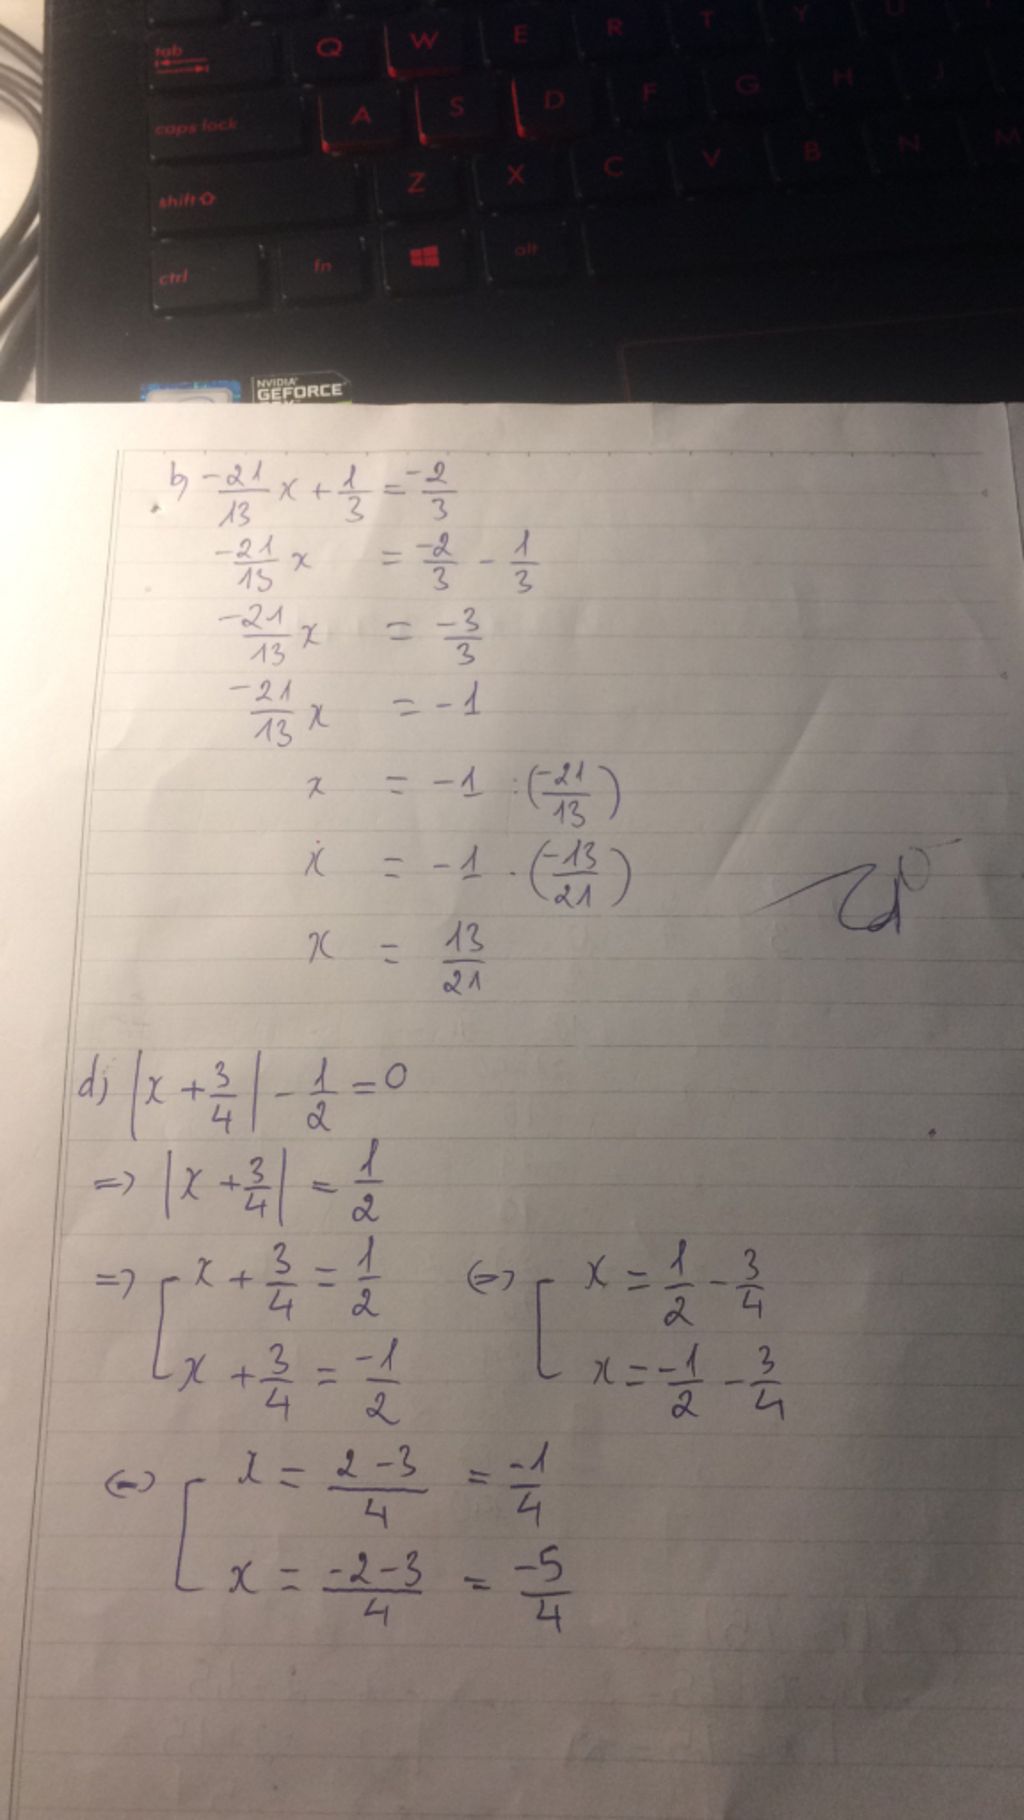 tab Q W E R T Y U
caps lock A S D F G H J
shift Z X C V B N M
ctrl fn alt
NVIDIA
GEFORCE
b) -21/13 x + 1/3 = -2/3
-21/13 x = -2/3 - 1/3
-21/13 x = -3/3
-21/13 x = -1
x = -1 : (-21/13)
x = -1 . (-13/21)
x = 13/21
d) |x + 3/4| - 1/2 = 0
=> |x + 3/4| = 1/2
=> [ x + 3/4 = 1/2 <=> [ x = 1/2 - 3/4
x + 3/4 = -1/2 x = -1/2 - 3/4
<=> [ x = 2-3/4 = -1/4
x = -2-3/4 = -5/4